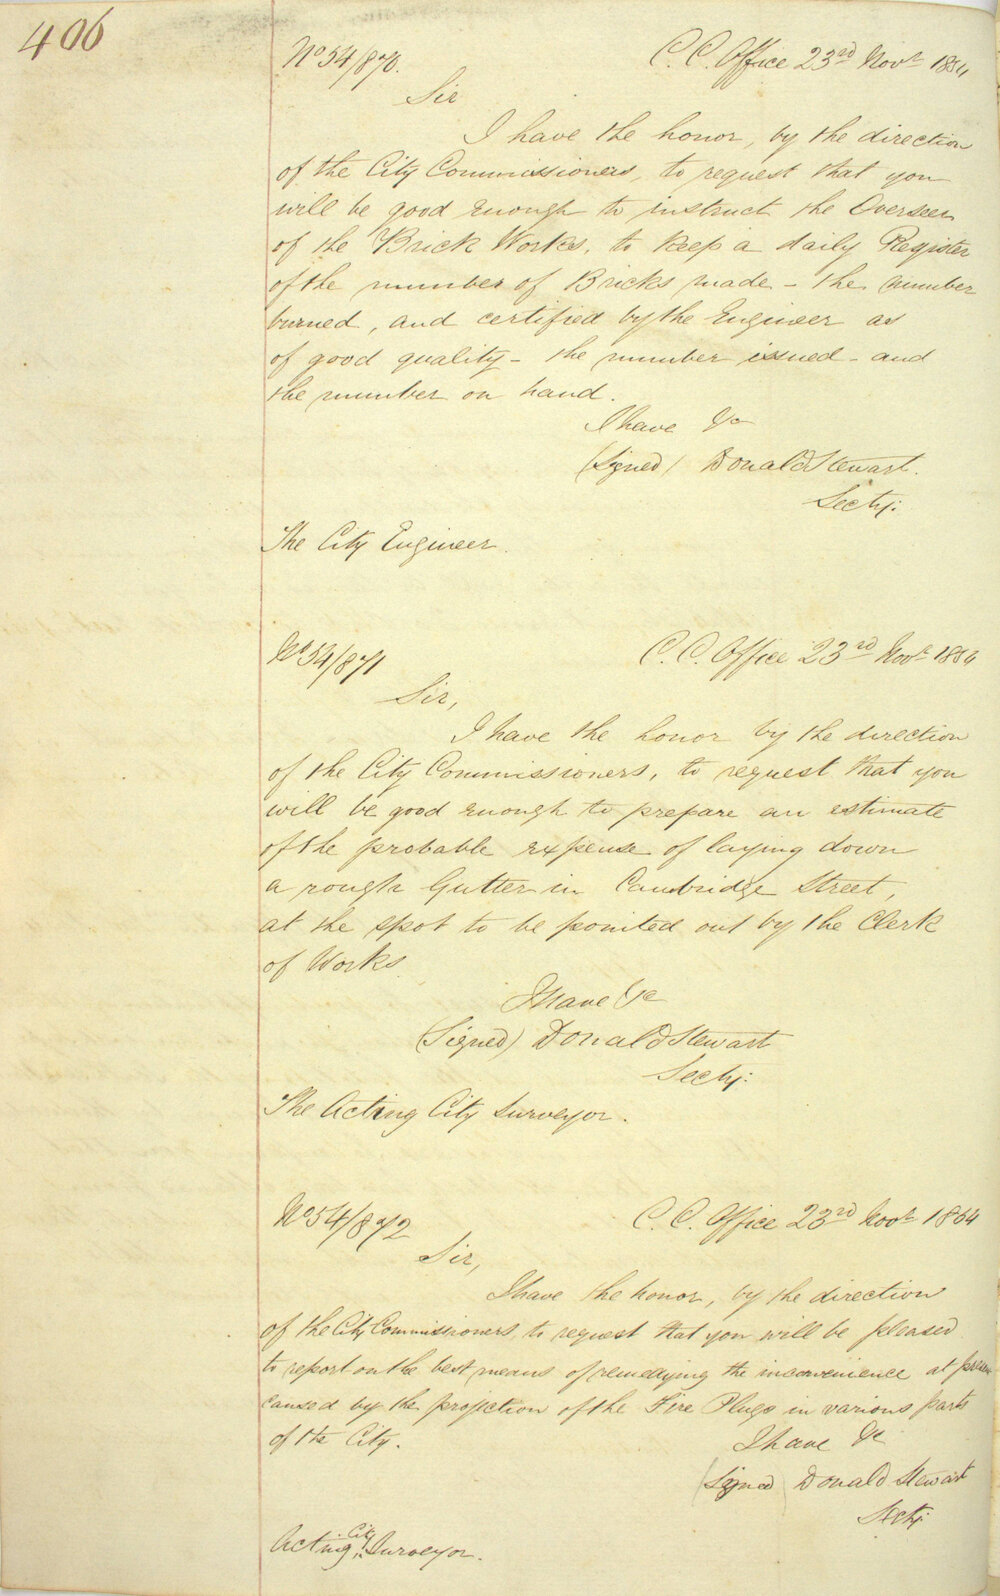 406
No 54/870. C. C. Office 23rd Novr 1854
Sir
I have the honor, by the direction
of the City Commissioners, to request that you
will be good enough to instruct the Overseer
of the Brick Works, to keep a daily Register
of the number of Bricks made - the number
burned, and certified by the Engineer as
of good quality - the number issued - and
the number on hand.
I have &c
(Signed) Donald Stewart.
Secty:
The City Engineer.
No 54/871 C. C. Office 23rd Novr 1854
Sir,
I have the honor by the direction
of the City Commissioners, to request that you
will be good enough to prepare an estimate
of the probable expense of laying down
a rough Gutter in Cambridge Street,
at the spot to be pointed out by the Clerk
of Works.
I have &c
(Signed) Donald Stewart
Secty:
The Acting City Surveyor.
No 54/872 C. C. Office 23rd Novr 1854
Sir,
I have the honor, by the direction
of the City Commissioners, to request that you will be pleased
to report on the best means of remedying the inconvenience at present
caused by the projection of the Fire Plugs in various parts
of the City.
I have &c
(Signed) Donald Stewart
Secty
Acting City Surveyor.